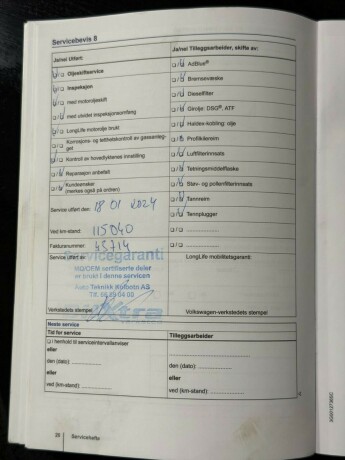 Servicebevis 8
Ja/nei Utført:
Oljeskiftservice
Inspeksjon
med motoroljeskift
med utvidet inspeksjonsomfang
LongLife motorolje brukt
Korrosjons- og tetthetskontroll av gassanlegget
Kontroll av hovedlyktenes innstilling
Reparasjon anbefalt
Kundeønsker
(merkes også på ordren)
Service utført den: 18 01 2024
Ved km-stand: 115040
Fakturanummer: 43714
Service utført av:
Servicegaranti
MO/OEM sertifiserte deler
er brukt i denne servicen
Auto Teknikk Kolbotn AS
Verkstedets stempel
Ja/nei Tilleggsarbeider, skiftes av:
AdBlue®
Bremsevæske
Dieselfilter
Girolje: DSG®, ATF
Haldex-kobling: olje
Profilkilereim
Luftfilterinnsats
Tetningsmiddelflaske
Støv- og pollenfilterinnsats
Tannreim
Tennplugger
LongLife mobilitetsgaranti:
Volkswagen-verkstedets stempel
Neste service
Tid for service
i henhold til serviceintervallviser
eller
den (dato):
eller
ved (km-stand):
Tilleggsarbeider
den (dato):
eller
ved (km-stand):
28 Servicehefte